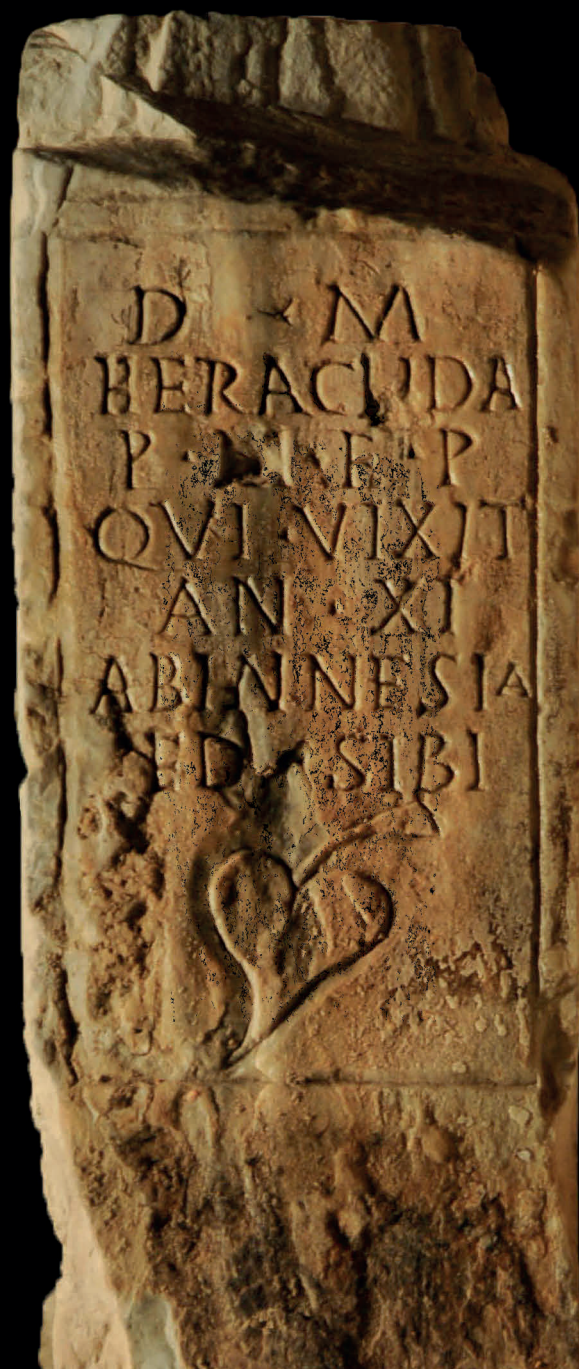 D M
HERACLIDA
P · F · P
QVI · VIXIT
AN · XI
ABINNESIA
ED SIBI